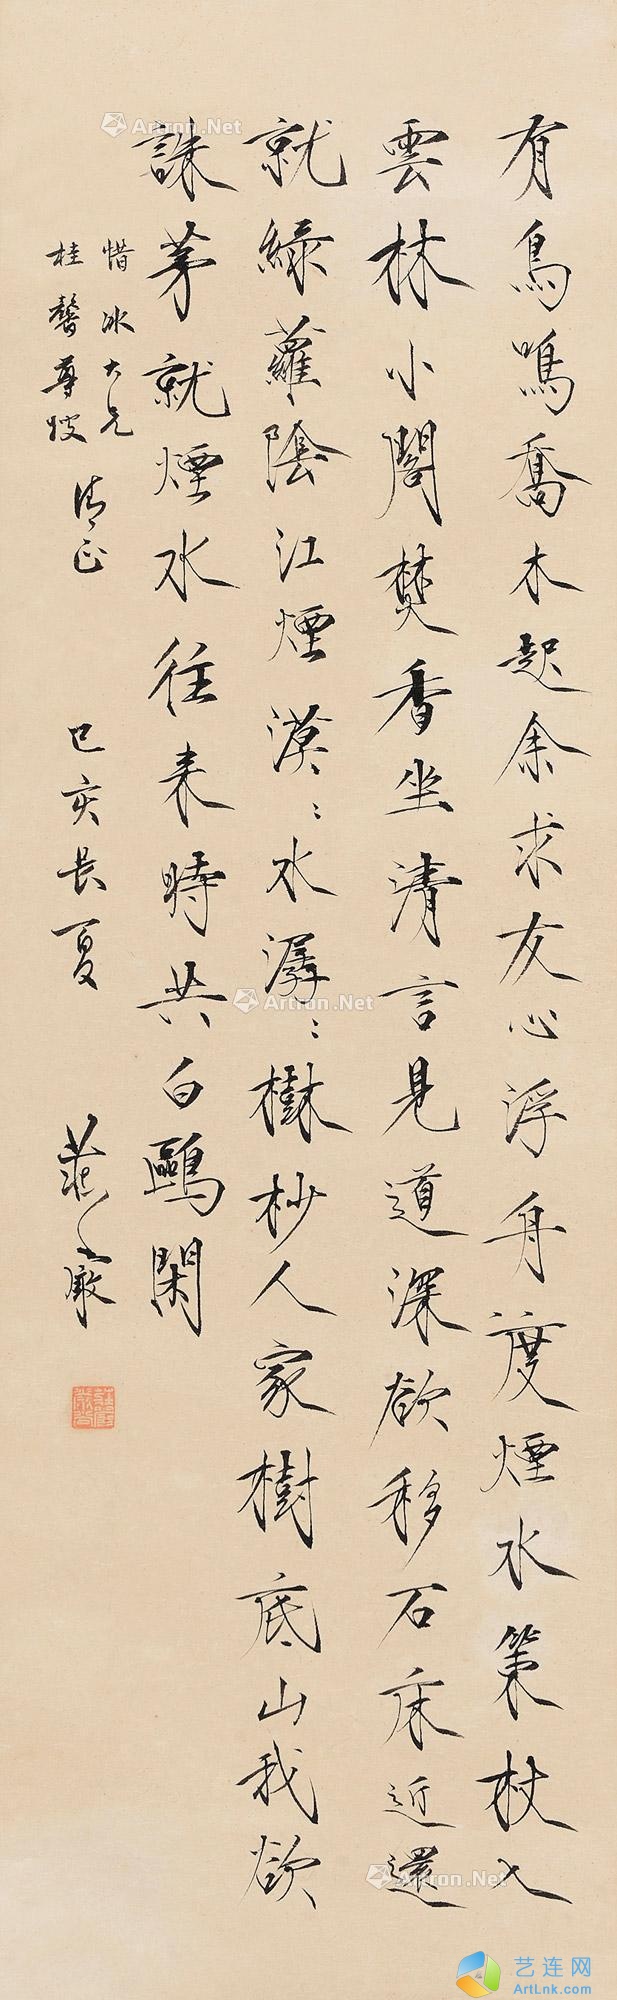 有鳥鳴喬木起余求友心浮舟度煙水策杖入
雲林小閣焚香坐清言見道深欲移石床近還
就綠蘿陰江煙漠〻水潺〻樹杪人家樹底山我欲
誅茅就煙水往来時共白鷗閑
惜冰大兄
桂馨尊嫂
清正
己亥長夏
莊嚴
Artron.Net
Artron.Net
Artron.Net
Artron.Net
艺连网
ArtLnk.com